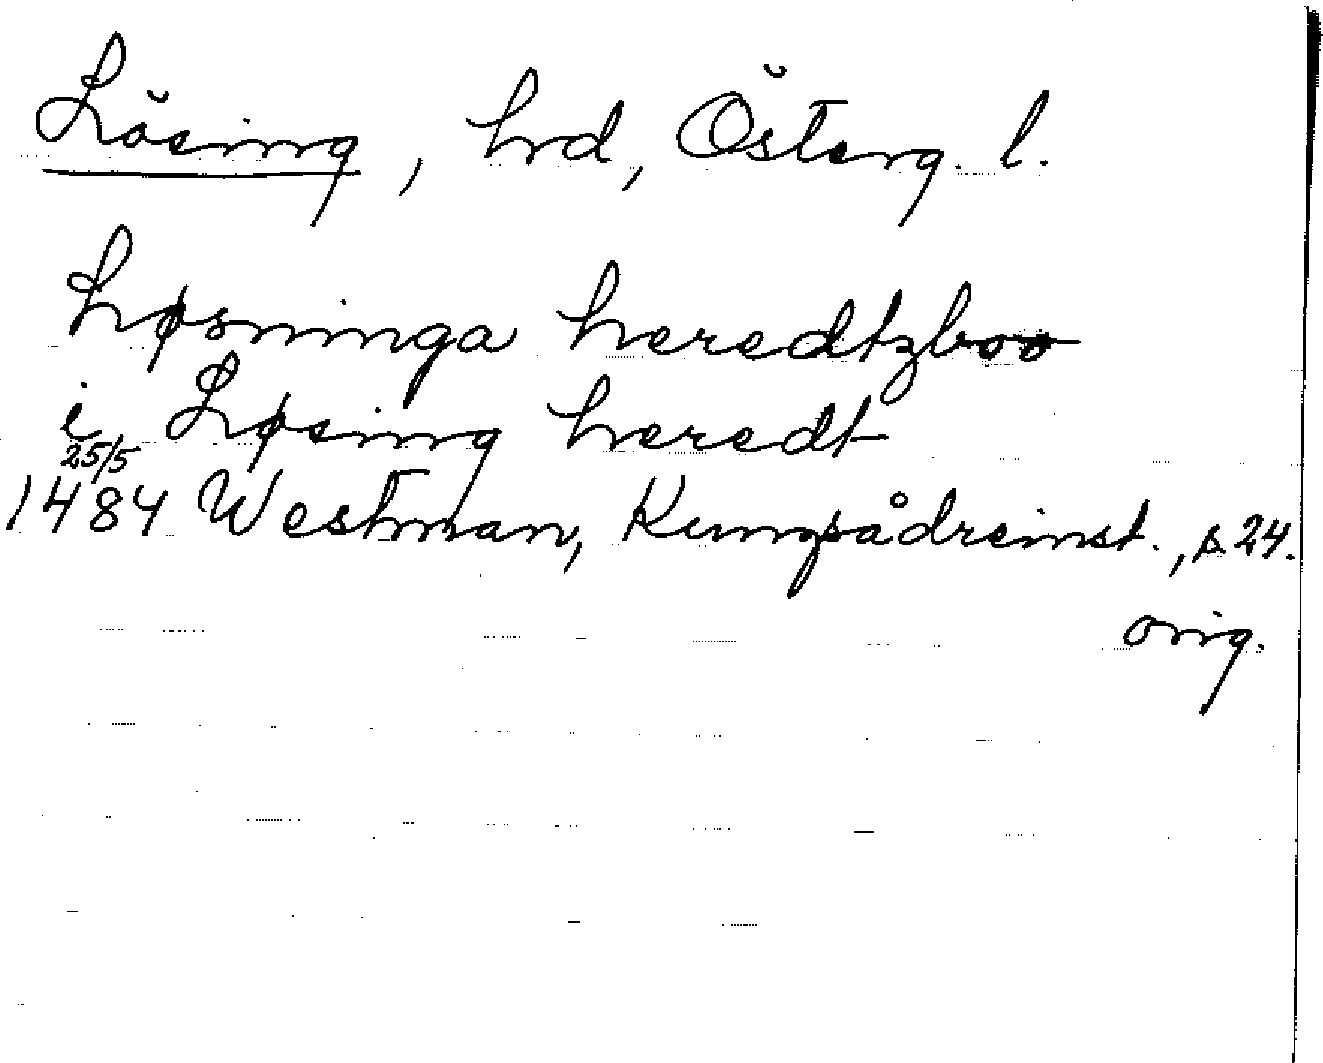 Lösing, hrd, Österg. l.
Løsninga heredtzboo
i Løsing heredt
25/5
1484 Westman, Kungsådreinst., s. 24.
orig.